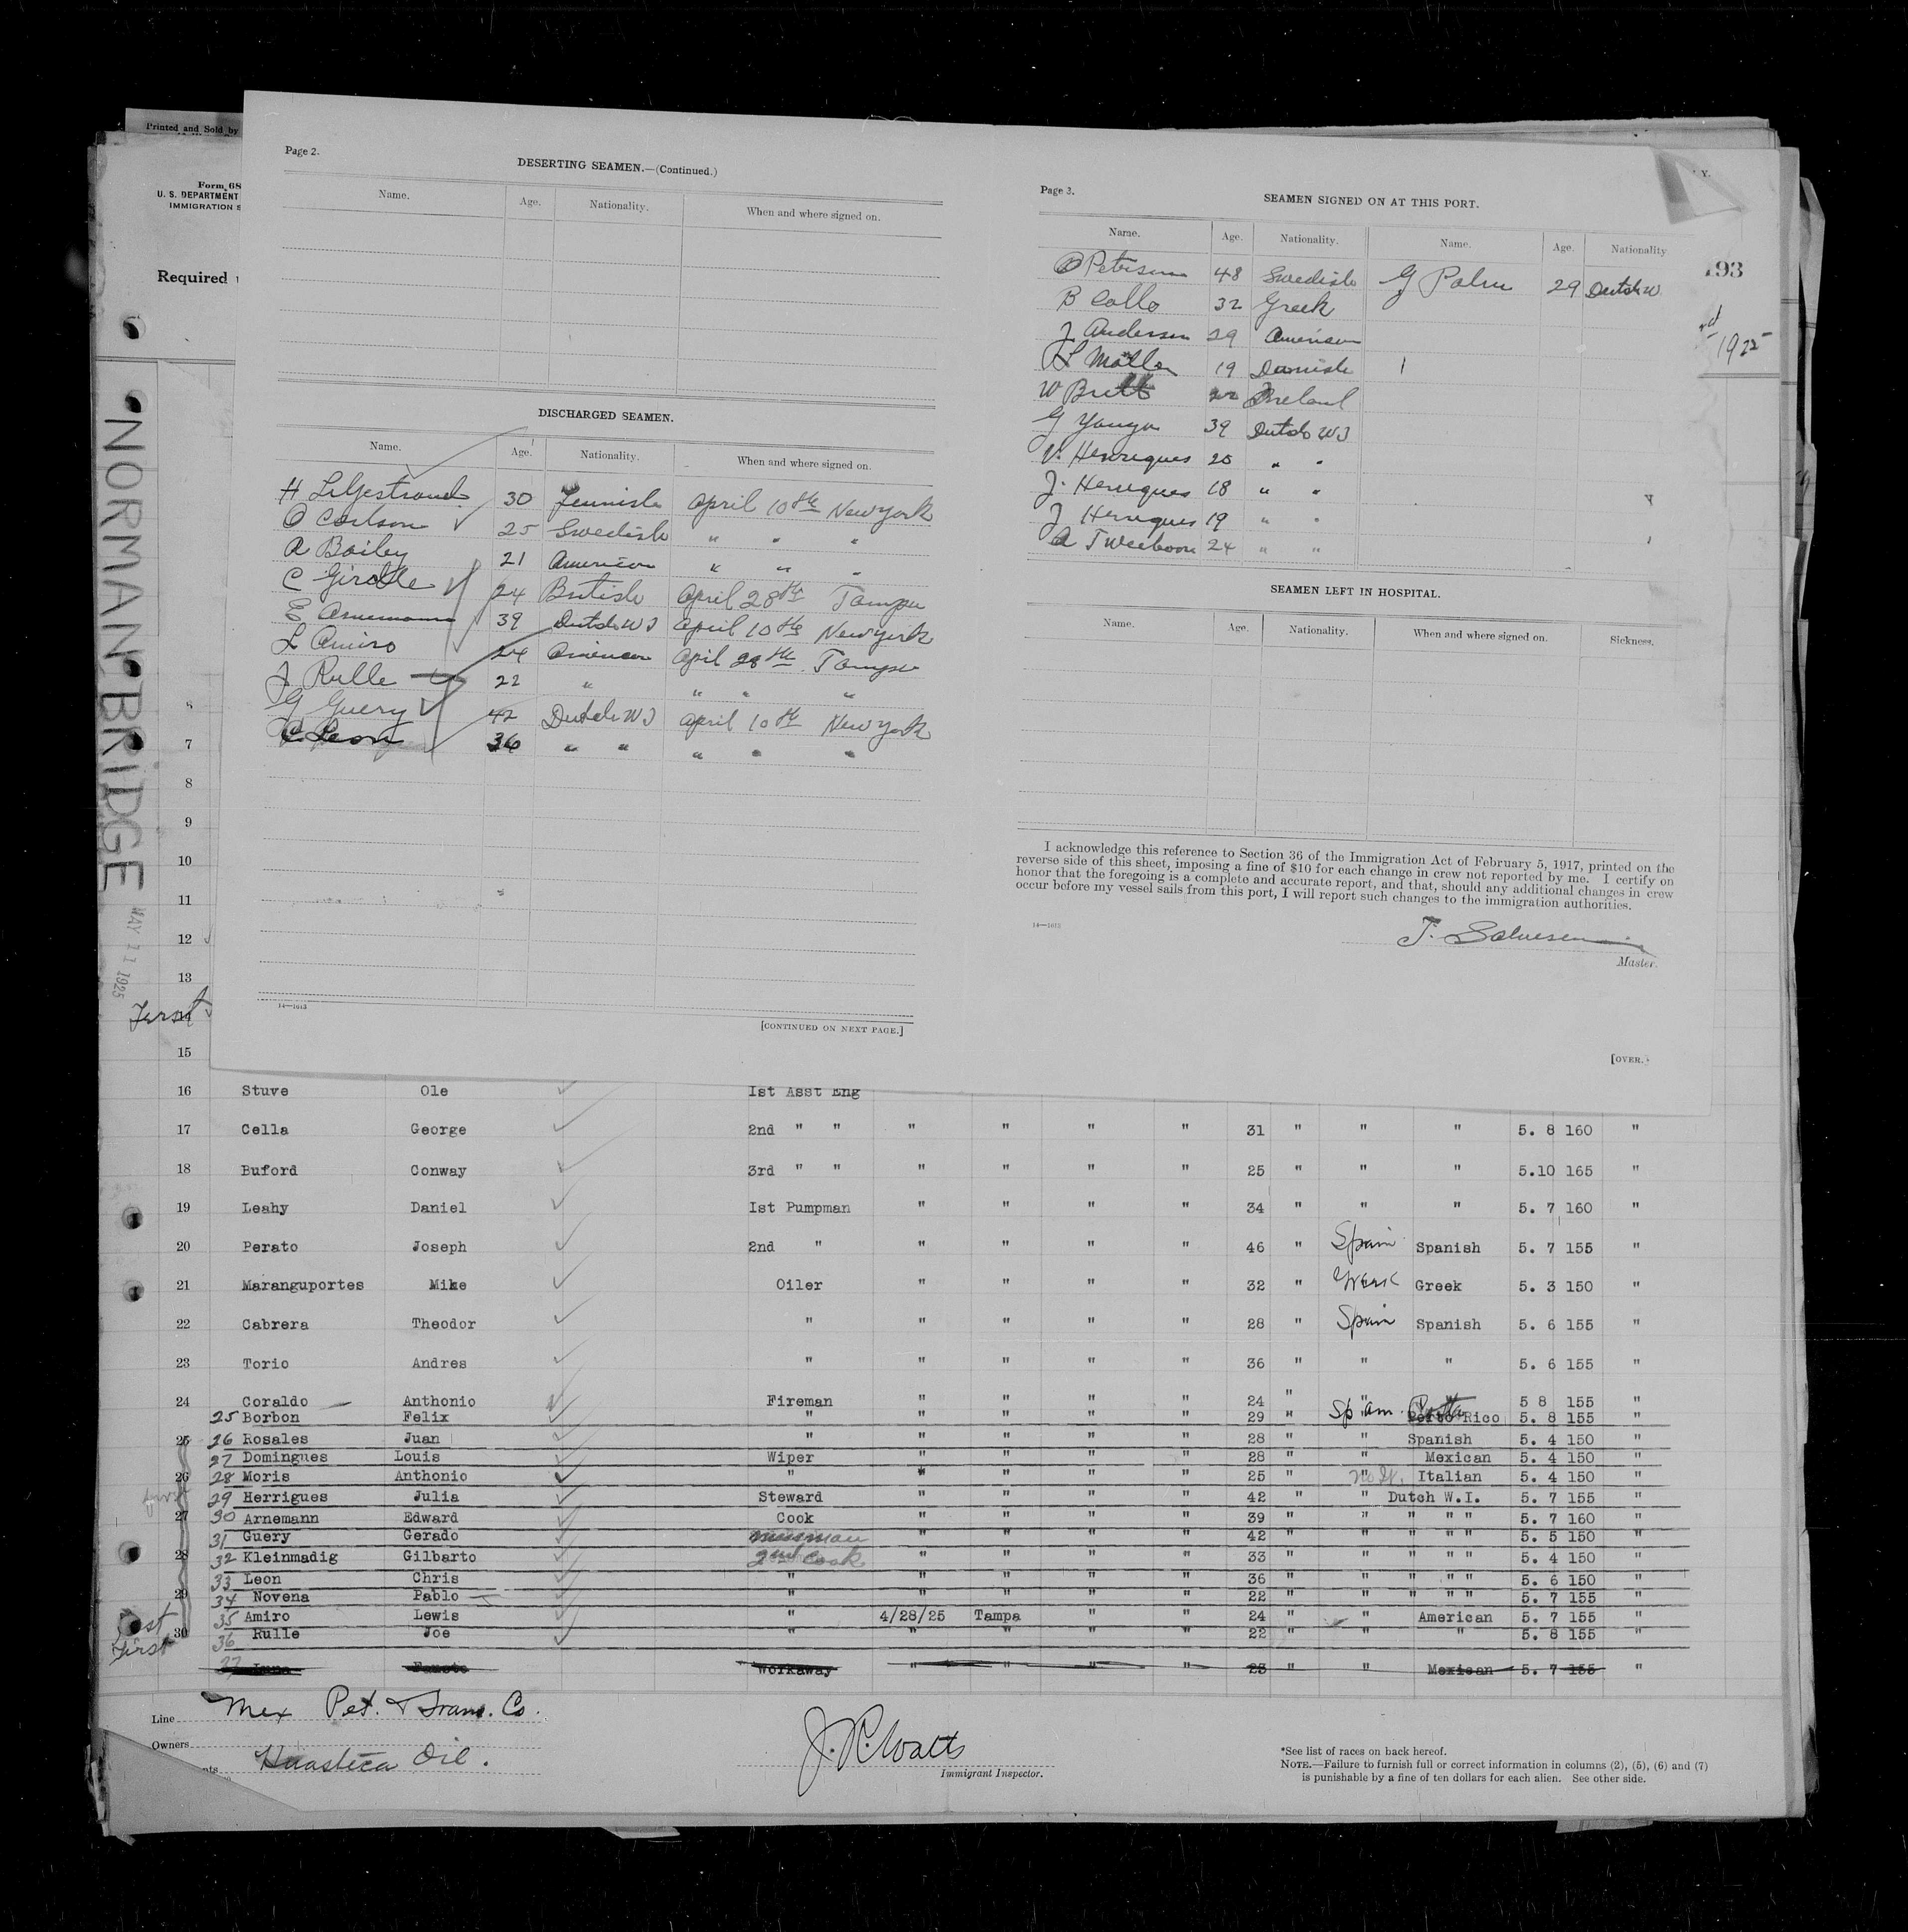 Printed and Sold by
Form 68
U. S. DEPARTMENT
IMMIGRATION S
Required
NORMAN BRIDGE MAY 11 1925
Page 2.
DESERTING SEAMEN.—(Continued.)
Name. Age. Nationality. When and where signed on.
DISCHARGED SEAMEN.
Name. Age. Nationality. When and where signed on.
H Liljestrand 30 Finnish April 10th New York
O Carlson 25 Swedish " " "
R Bailey 21 American " " "
C Girdle 24 British April 28th Tampa
E Arnemann 39 Dutch W I April 10th New York
L Amiro 24 American April 28th Tampa
J Rulle 22 " " " "
G Guery 42 Dutch W I April 10th New York
C Leon 36 " " " " "
14—1613
[CONTINUED ON NEXT PAGE.]
Page 3.
SEAMEN SIGNED ON AT THIS PORT.
Name. Age. Nationality. Name. Age. Nationality
O Peterson 48 Swedish G Palm 29 Dutch W.
B Collo 32 Greek
J Anderson 29 American
L Moller 19 Danish
W Britt 22 Ireland
G Yanga 39 Dutch W I
V. Henriques 20 " "
J. Henriques 18 " "
J Henriques 19 " "
A Tweeboom 24 " "
SEAMEN LEFT IN HOSPITAL.
Name. Age. Nationality. When and where signed on. Sickness.
I acknowledge this reference to Section 36 of the Immigration Act of February 5, 1917, printed on the
reverse side of this sheet, imposing a fine of $10 for each change in crew not reported by me. I certify on
honor that the foregoing is a complete and accurate report, and that, should any additional changes in crew
occur before my vessel sails from this port, I will report such changes to the immigration authorities.
14—1613
T. Salvesen
Master.
[OVER.]
193
1925
7
8
9
10
11
12
13
First
15
16 Stuve Ole 1st Asst Eng
17 Cella George 2nd " " " " " " 31 " " " 5. 8 160 "
18 Buford Conway 3rd " " " " " " 25 " " " 5.10 165 "
19 Leahy Daniel 1st Pumpman " " " " 34 " " " 5. 7 160 "
20 Perato Joseph 2nd " " " " " 46 " Spain Spanish 5. 7 155 "
21 Maranguportes Mike Oiler " " " " 32 " Greek Greek 5. 3 150 "
22 Cabrera Theodor " " " " " 28 " Spain Spanish 5. 6 155 "
23 Torio Andres " " " " " 36 " " " 5. 6 155 "
24 Coraldo Anthonio Fireman " " " " 24 " " 5 8 155 "
25 Borbon Felix " " " " " 29 " Spam. Porto Rico 5. 8 155 "
25 26 Rosales Juan " " " " " 28 " " Spanish 5. 4 150 "
27 Domingues Louis Wiper " " " " 28 " " Mexican 5. 4 150 "
26 28 Moris Anthonio " " " " " 25 " " Italian 5. 4 150 "
29 Herrigues Julia Steward " " " " 42 " " Dutch W.I. 5. 7 155 "
27 30 Arnemann Edward Cook " " " " 39 " " " " " 5. 7 160 "
31 Guery Gerado messman " " " " 42 " " " " " 5. 5 150 "
28 32 Kleinmadig Gilbarto 2nd Cook " " " " 33 " " " " " 5. 4 150 "
33 Leon Chris " " " " " 36 " " " " " 5. 6 150 "
29 34 Novena Pablo " " " " " 22 " " " " " 5. 7 155 "
35 Amiro Lewis " 4/28/25 Tampa " " 24 " " American 5. 7 155 "
30 36 Rulle Joe " " " " " 22 " " " 5. 8 155 "
First
37 Workaway " " " " 23 " " Mexican 5. 7 155 "
Line Mex Pet. & Trans. Co.
Owners
Huasteca Oil.
J. R. Watts
Immigrant Inspector.
*See list of races on back hereof.
NOTE.—Failure to furnish full or correct information in columns (2), (5), (6) and (7)
is punishable by a fine of ten dollars for each alien. See other side.